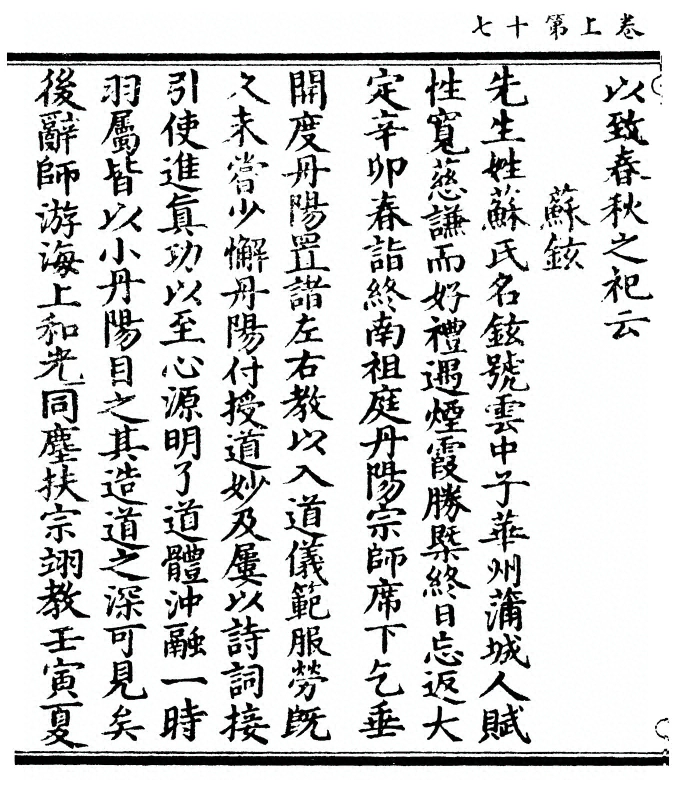 卷上第十七
以致春秋之祀云
蘇鉉
先生姓蘇氏名鉉號雲中子華州蒲城人賦
性寬慈謙而好禮遇煙霞勝槩終日忘返大
定辛卯春詣終南祖庭丹陽宗師席下乞垂
開度丹陽置諸左右教以入道儀範服勞旣
久未嘗少懈丹陽付授道妙及屢以詩詞接
引使進真功以至心源明了道體沖融一時
羽屬皆以小丹陽目之其造道之深可見矣
後辭師游海上和光同塵扶宗翊教壬寅夏